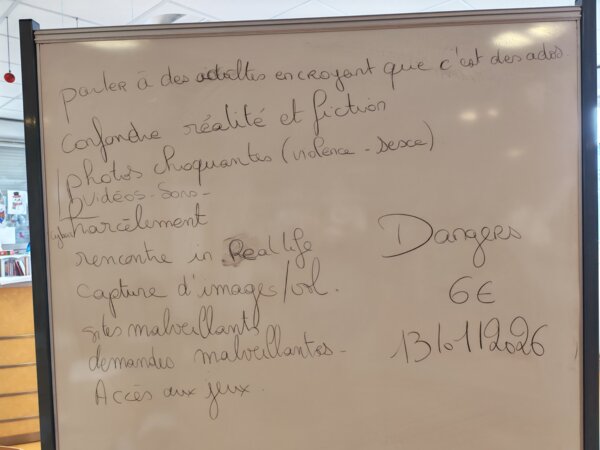 parler à des adultes en croyant que c'est des ados
confondre réalité et fiction
photos choquantes (violence - sexe)
vidéos - sons -
cyber harcèlement
rencontre in Real life
capture d'images / vol.
sites malveillants
demandes malveillantes -
Accès aux jeux.
Dangers
6E
13/01/2026